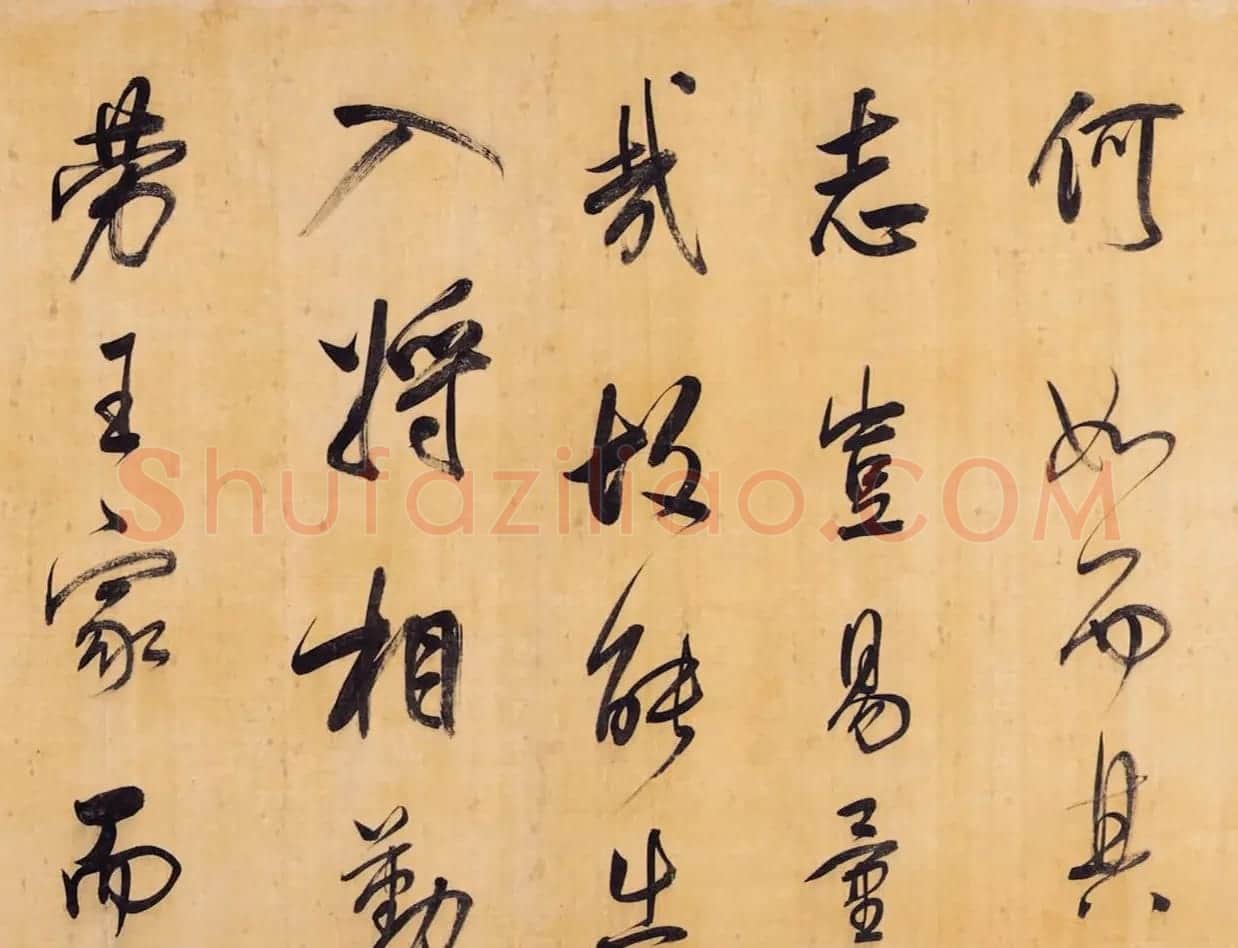 何如而其
志豈易量
哉故能出
入將相勤
勞王家而
Shufaziliao.COM